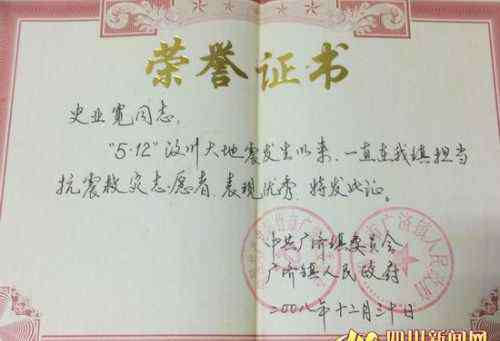 荣誉证书
史业宽同志:
"5·12"汶川大地震发生以来,一直在我镇担当
抗震救灾志愿者,表现优秀,特发此证。
中共广济镇委员会
广济镇人民政府
二00八年十二月三十日
四川新闻网